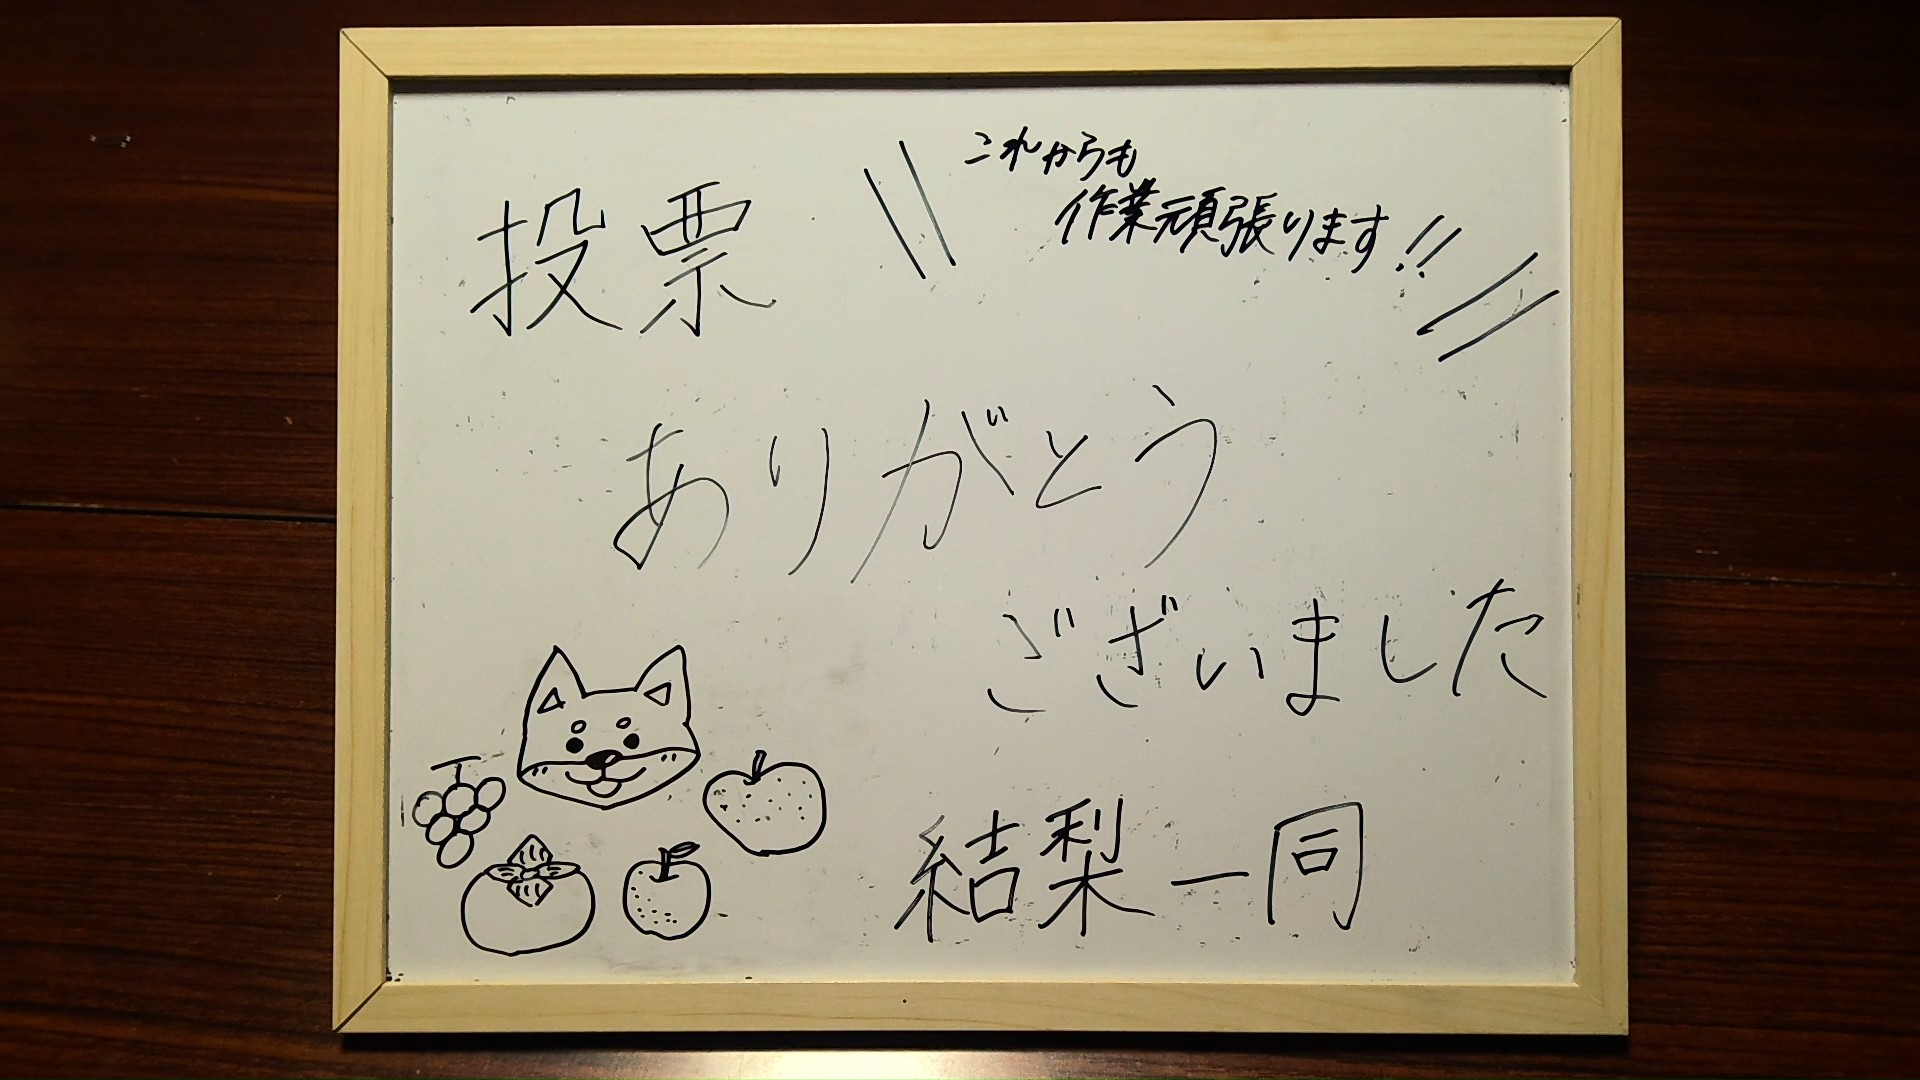 投票
これからも
作業頑張ります!!
ありがとう
ございました
結梨一同